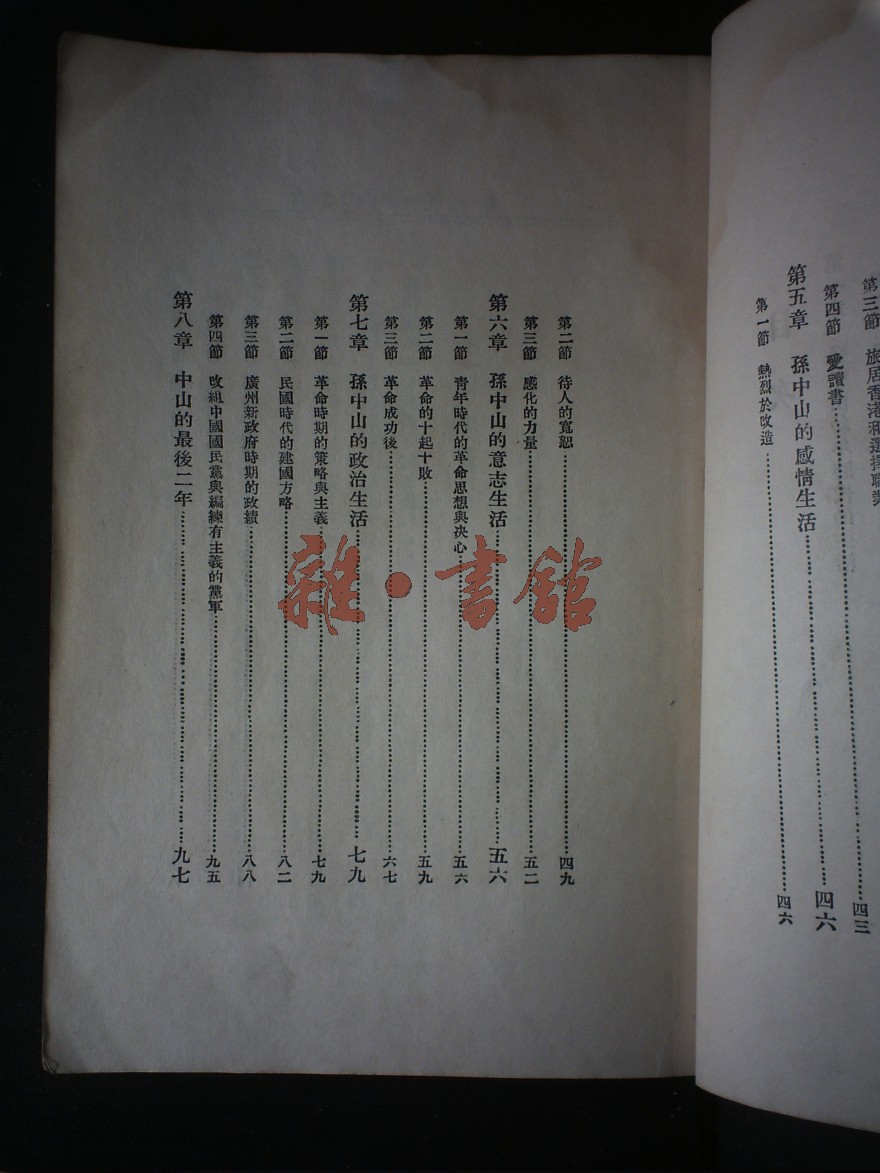 第三節 旅居香港和選擇職業
第四節 愛讀書……四三
第五章 孫中山的感情生活……四六
第一節 熱烈於改造……四六
第二節 待人的寬恕……四九
第三節 感化的力量……五二
第六章 孫中山的意志生活……五六
第一節 青年時代的革命思想與决心……五六
第二節 革命的十起十敗……五九
第三節 革命成功後……六七
第七章 孫中山的政治生活……七九
第一節 革命時期的策略與主義……七九
第二節 民國時代的建國方略……八二
第三節 廣州新政府時期的政績……八八
第四節 改組中國國民黨與編練有主義的黨軍……九五
第八章 中山的最後二年……九七
雜·書館